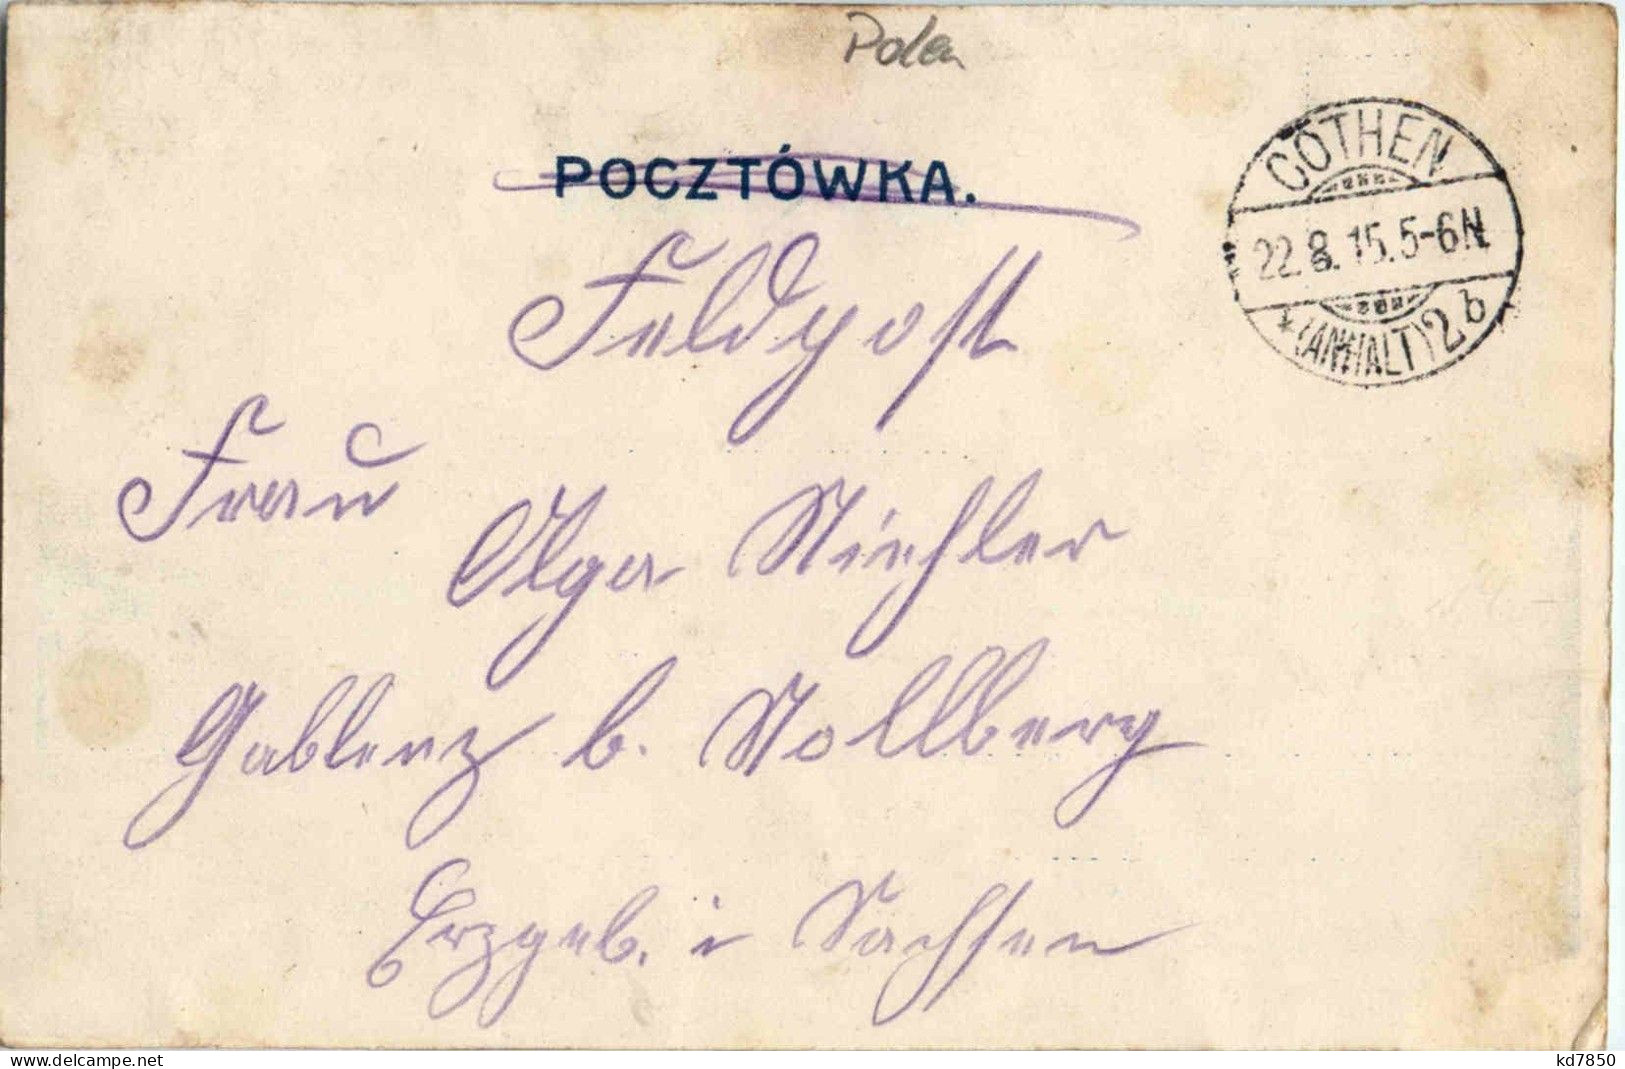 Polen
POCZTÓWKA.
CÖTHEN
22.8.15.5-6N
*(ANHALT)2b
Feldpost
Frau
Olga
Gablenz b. Stollberg
Erzgeb. i Sachsen
kd7850